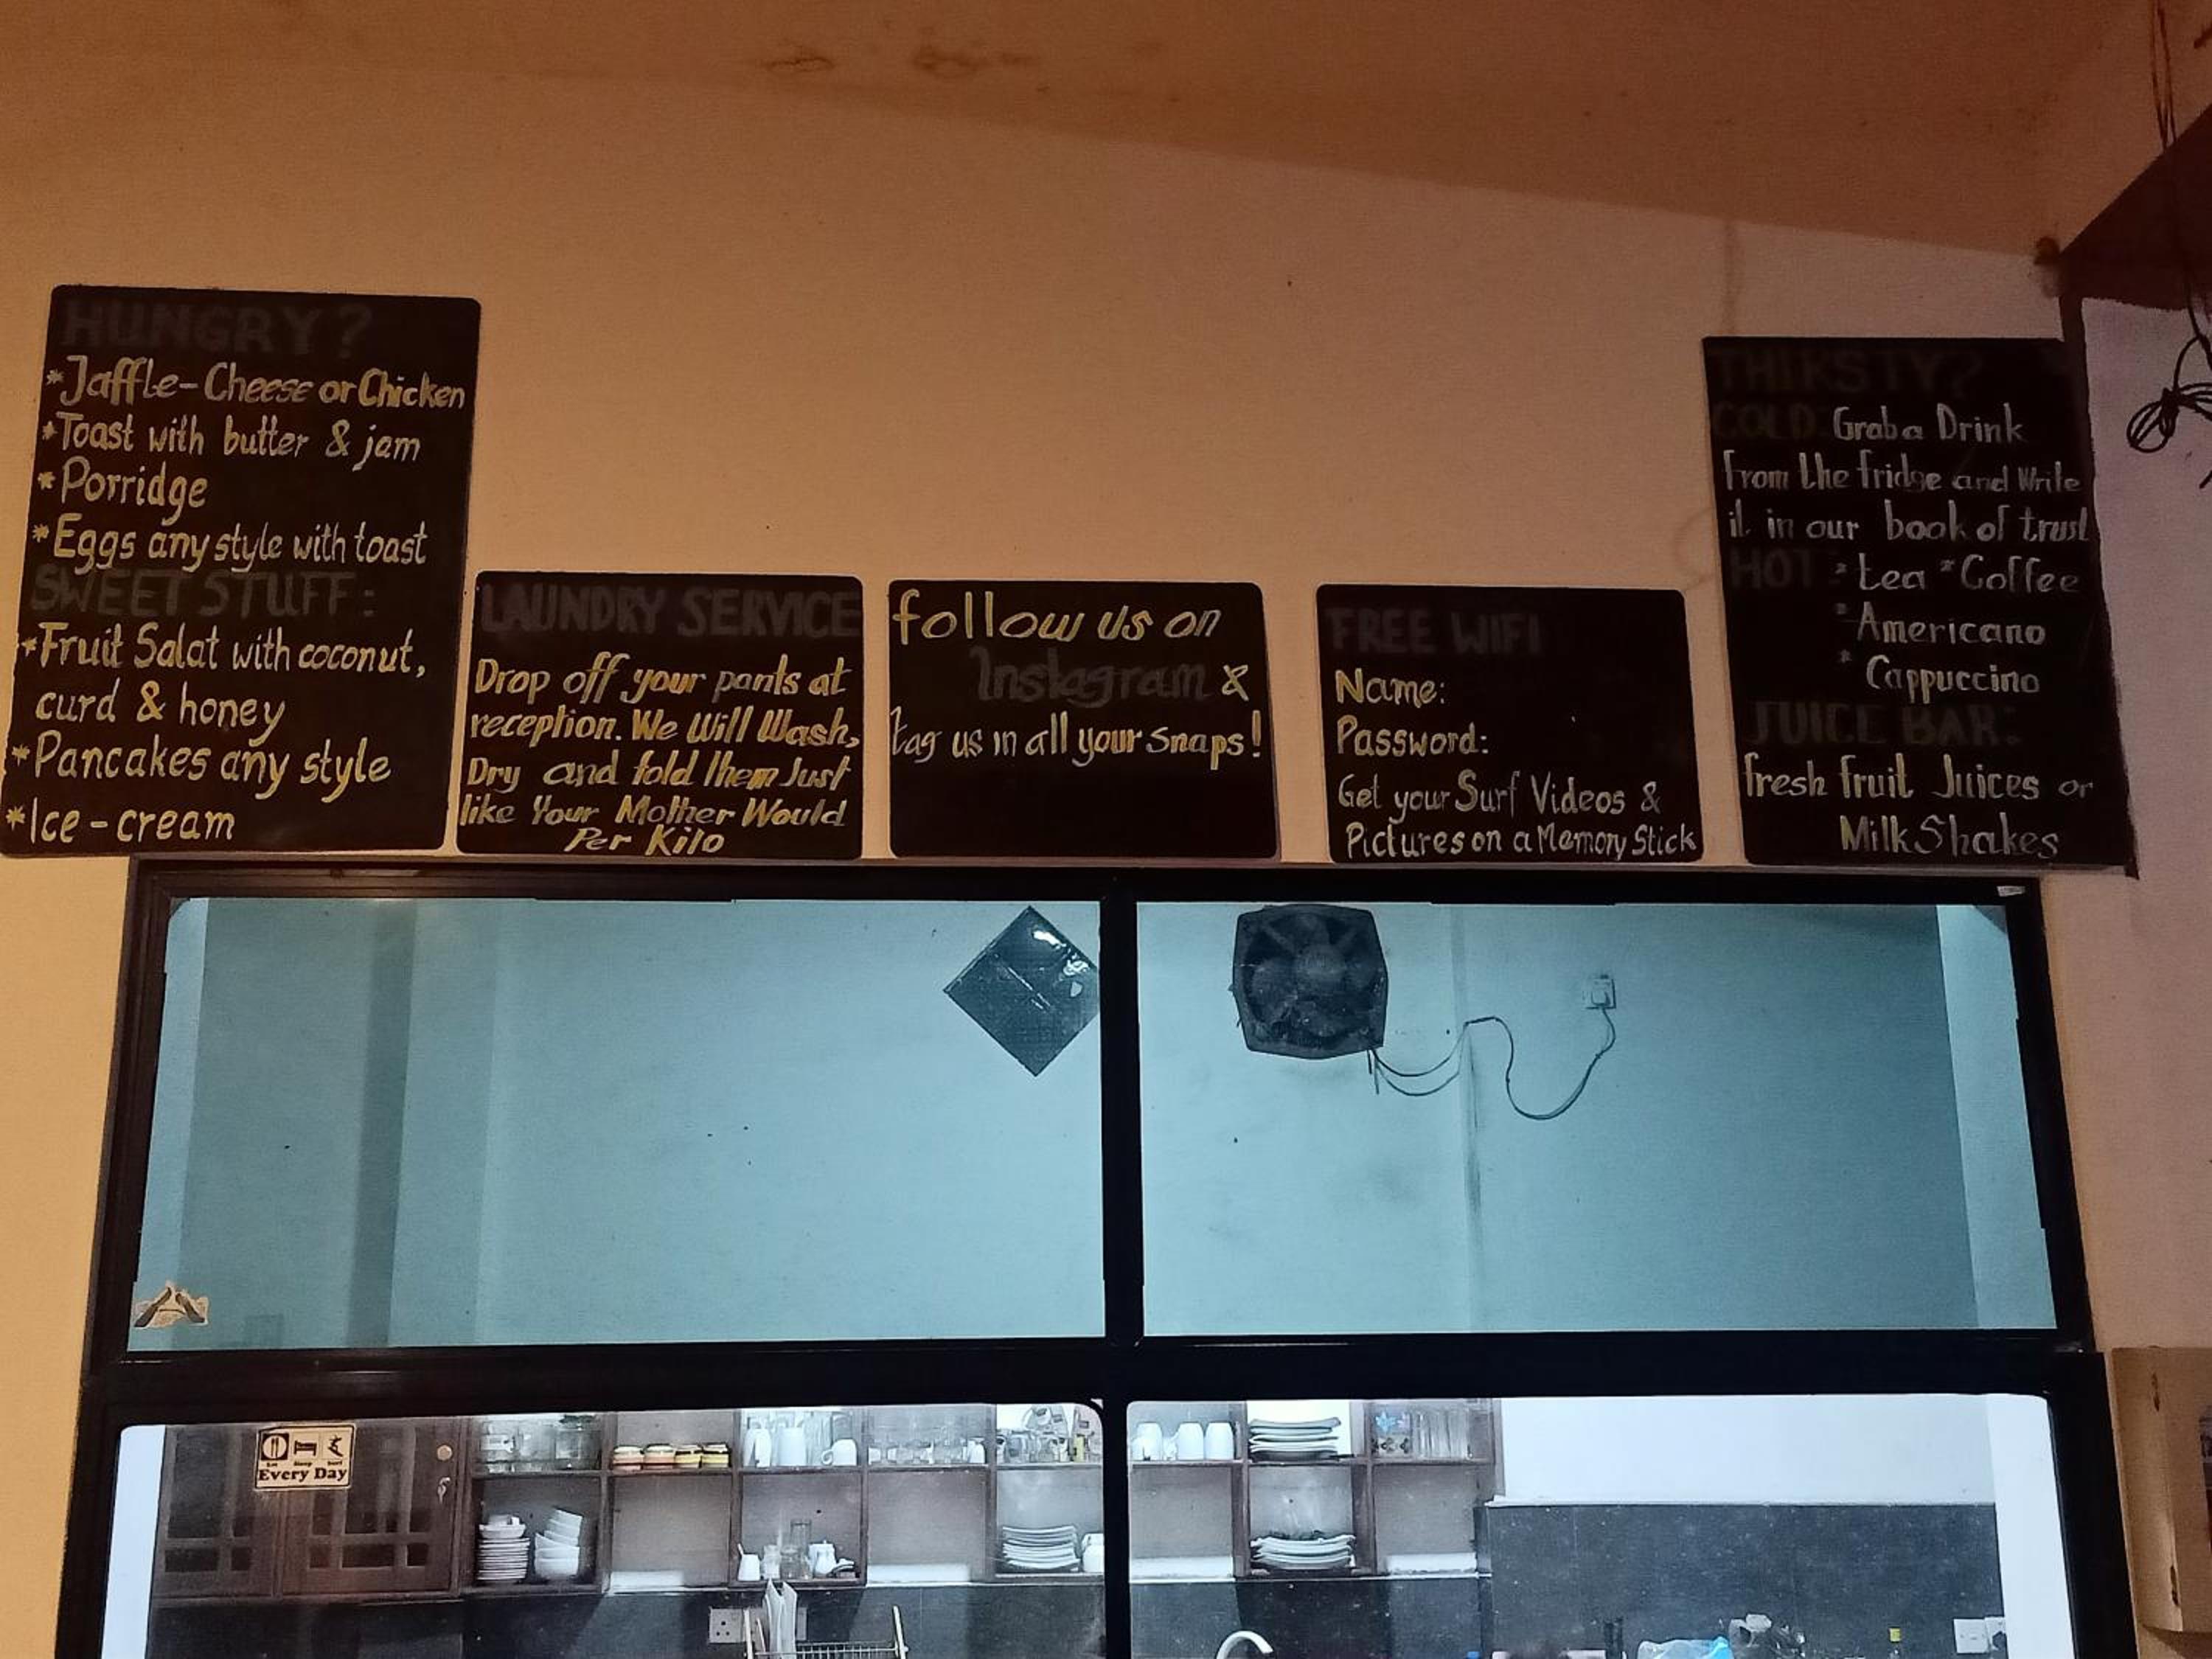 HUNGRY?
*Jaffle-Cheese or Chicken
*Toast with butter & jam
*Porridge
*Eggs any style with toast
SWEET STUFF:
*Fruit Salat with coconut,
curd & honey
*Pancakes any style
*Ice-cream
LAUNDRY SERVICE
Drop off your pants at
reception. We Will Wash,
Dry and fold Them Just
like Your Mother Would
Per Kilo
follow us on
Instagram &
tag us in all your snaps!
FREE WIFI
Name:
Password:
Get your Surf Videos &
Pictures on a Memory Stick
THIRSTY?
COLD: Grab a Drink
from the fridge and Write
it in our book of trust
HOT: *tea *Coffee
*Americano
*Cappuccino
JUICE BAR:
fresh fruit Juices or
Milk Shakes
Eat Sleep Surf
Every Day